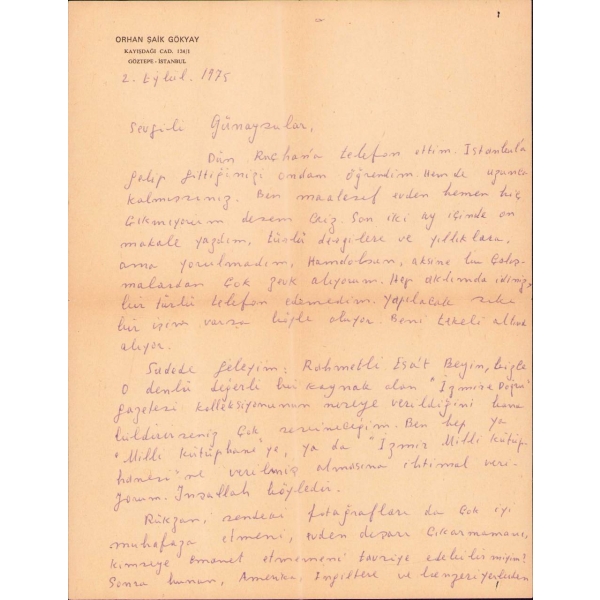 ORHAN ŞAİK GÖKYAY
KAYIŞDAĞI CAD. 124/1
GÖZTEPE - İSTANBUL
2. Eylül. 1975
Sevgili Günaysular,
Dün Ruçhan'a telefon ettim. İstanbul'a
gelip gittiğinizi ondan öğrendim. Hem de uzunca
kalmışsınız. Ben maalesef evden hemen hiç
çıkmıyorum desem caiz. Son iki ay içinde on
makale yazdım, türlü dergilere ve yıllıklara,
ama yorulmadım, Hamdolsun, aksine bu çalış-
malardan çok zevk alıyorum. Hep aklımda idiniz,
bir türlü telefon edemedim. Yapılacak
bir işim varsa böyle oluyor. Beni etkisi altına
alıyor.
Sadede geleyim: Rahmetli Esat Beyin, böyle
o denlü değerli bir kaynak olan "İzmire Doğru"
gazetesi kolleksiyonunun nereye verildiğini bana
bildirirseniz çok sevineceğim. Ben hep ya
"Milli Kütüphane"ye, ya da "İzmir Milli Kütüp-
hanesi"ne verilmiş olmasına ihtimal veri-
yorum. İnşallah böyledir.
Rükzan, sendeki fotoğrafları da çok iyi
muhafaza etmeni, evden dışarı çıkarmamanı,
kimseye emanet etmemeni tavsiye edebilir miyim?
Sonra bunun, Amerika, İngiltere ve benzeri yerlerden